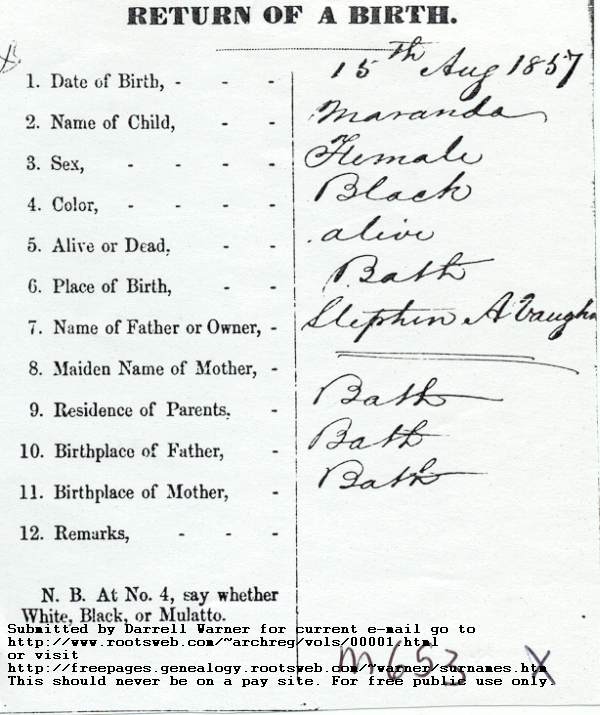 RETURN OF A BIRTH.
1. Date of Birth, - - - 15th Aug 1857
2. Name of Child, - - Maranda
3. Sex, - - - - Female
4. Color, - - - - Black
5. Alive or Dead, - - alive
6. Place of Birth, - - Bath
7. Name of Father or Owner, - Stephen A Vaughn
8. Maiden Name of Mother, -
9. Residence of Parents, - Bath
10. Birthplace of Father, - Bath
11. Birthplace of Mother, - Bath
12. Remarks, - - -
N. B. At No. 4, say whether
White, Black, or Mulatto.
Submitted by Darrell Warner for current e-mail go to
http://www.rootsweb.com/~archreg/vols/00001.html
or visit
http://freepages.genealogy.rootsweb.com/~warner/surnames.htm
This should never be on a pay site. For free public use only.
M653 X